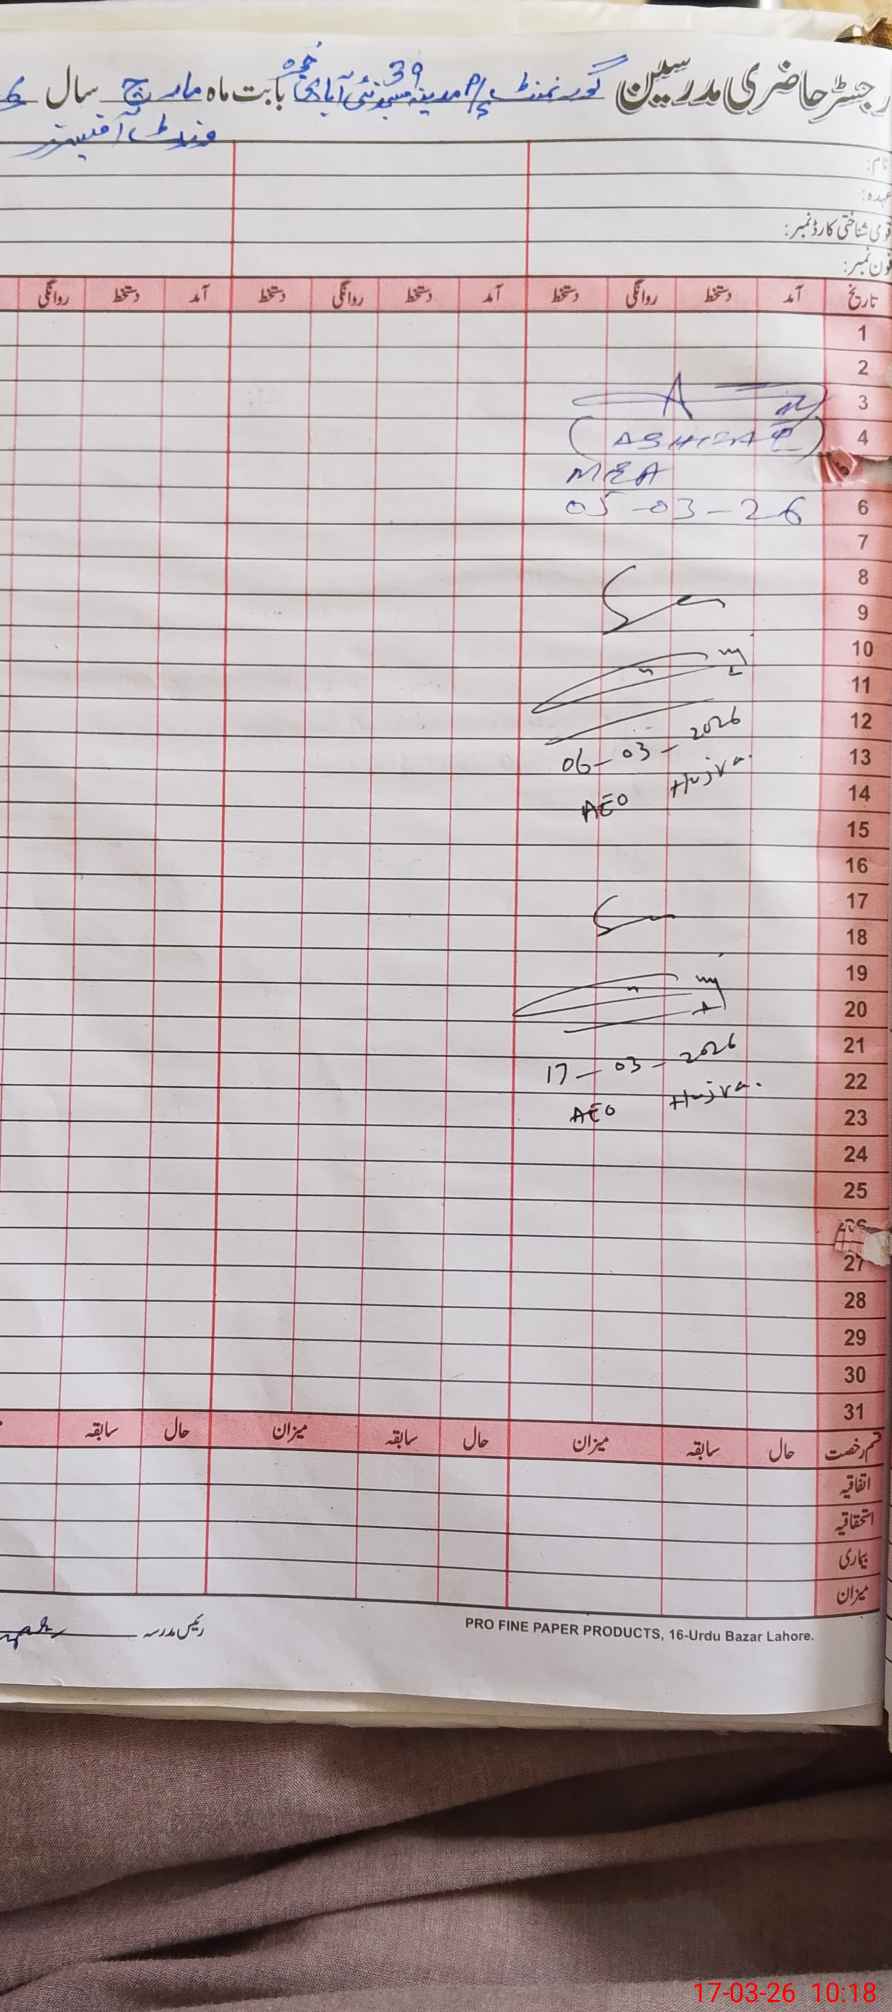 رجسٹر حاضری مدرسین گورنمنٹ P/S مدینہ مسجد نئی آبادی 39 بابت ماہ مارچ سال 6
وزٹ آفیسرز
نام:
عہدہ:
قومی شناختی کارڈ نمبر:
فون نمبر:
تاریخ آمد دستخط روانگی دستخط آمد دستخط روانگی دستخط آمد دستخط روانگی
1
2
3
4
(ASHRAF)
MEA
6
05-03-26
7
8
9
10
11
12
06-03-2026
13
AEO Hujra.
14
15
16
17
18
19
20
21
17-03-2026
22
AEO Hujra.
23
24
25
26
27
28
29
30
31
قسم رخصت حال سابقہ میزان حال سابقہ میزان حال سابقہ
اتفاقیہ
استحقاقیہ
بیماری
میزان
رئیس مدرسہ
PRO FINE PAPER PRODUCTS, 16-Urdu Bazar Lahore.
17-03-26 10:18